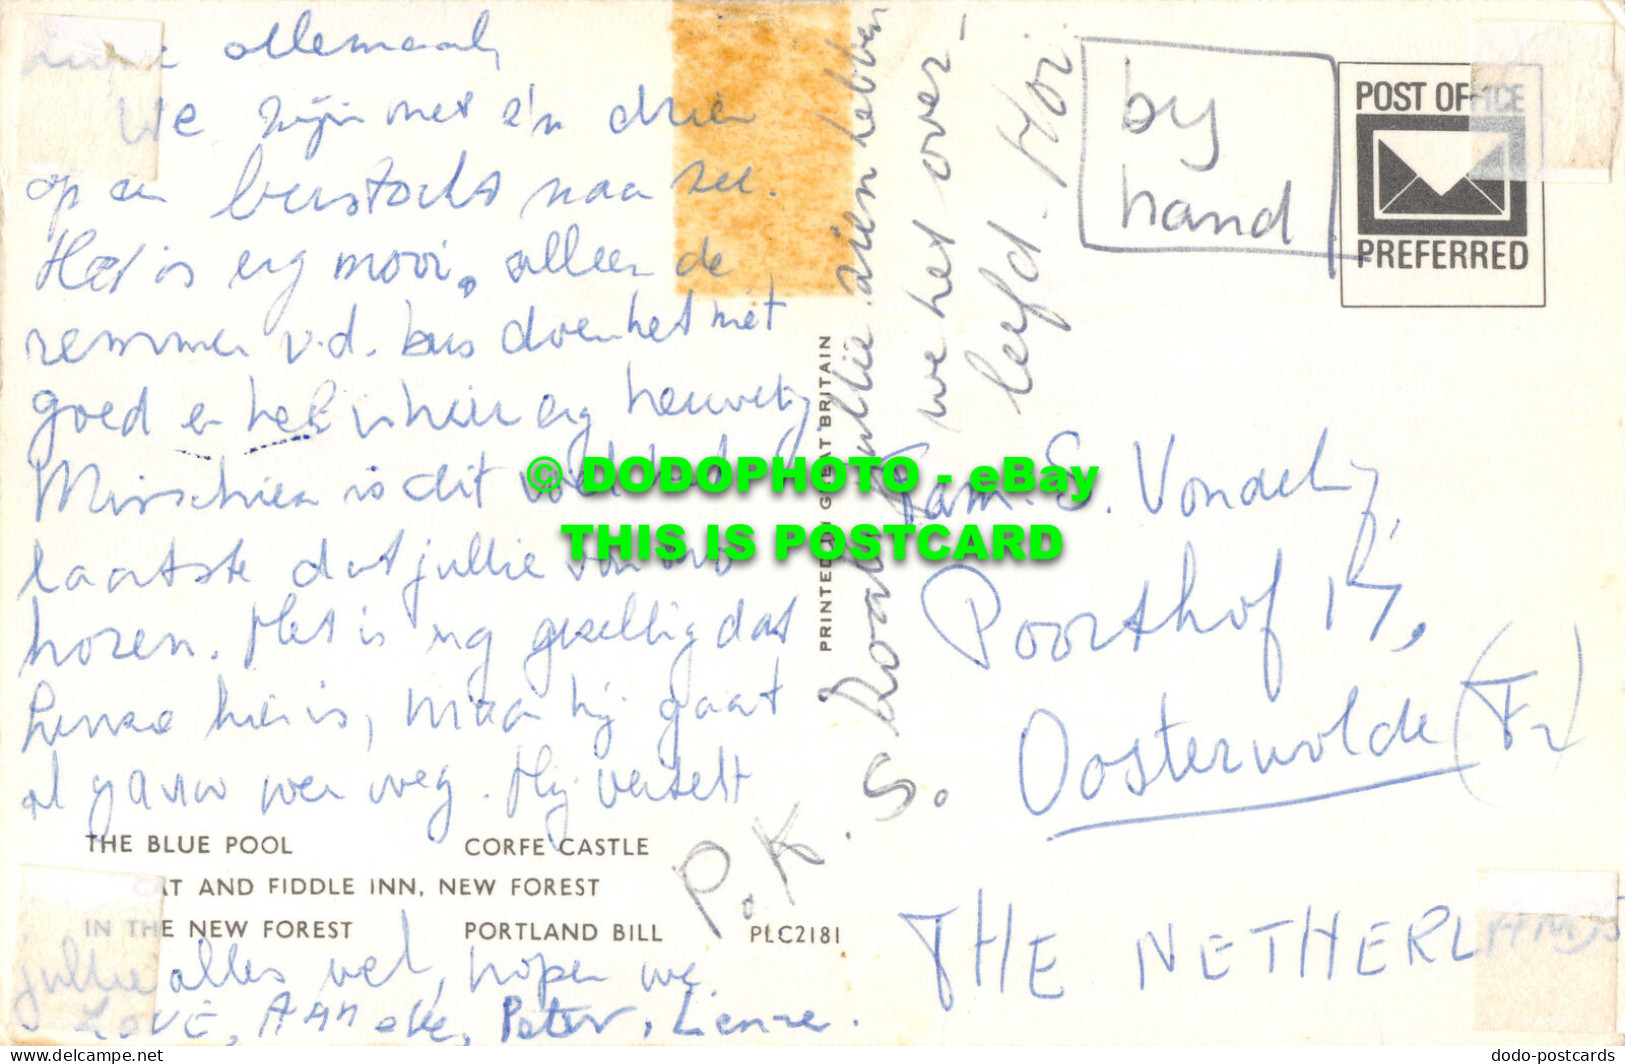 allemaal,
We zijn met z'n drieën
op een bustocht naar zee.
Het is erg mooi, alleen de
remmen v.d. bus doen het niet
goed en het is hier erg heuvelig
Misschien is dit wel het
laatste dat jullie van ons
horen. Het is erg gezellig dat
Lienze hier is, maar hij gaat
al gauw weer weg. Hij vertelt
THE BLUE POOL CORFE CASTLE
CAT AND FIDDLE INN, NEW FOREST
IN THE NEW FOREST PORTLAND BILL PLC2181
jullie alles wel, hopen we.
LOVE, Anneke, Peter, Lienze.
P.S.
jullie zien hebben
we het over-
leefd. Hoi
PRINTED IN GREAT BRITAIN
by
hand
POST OFFICE
PREFERRED
Fam. S. Vondeling,
Poorthof 17,
Oosterwolde (Fr)
THE NETHERLANDS
© DODOPHOTO - eBay
THIS IS POSTCARD
delcampe.net
dodo-postcards